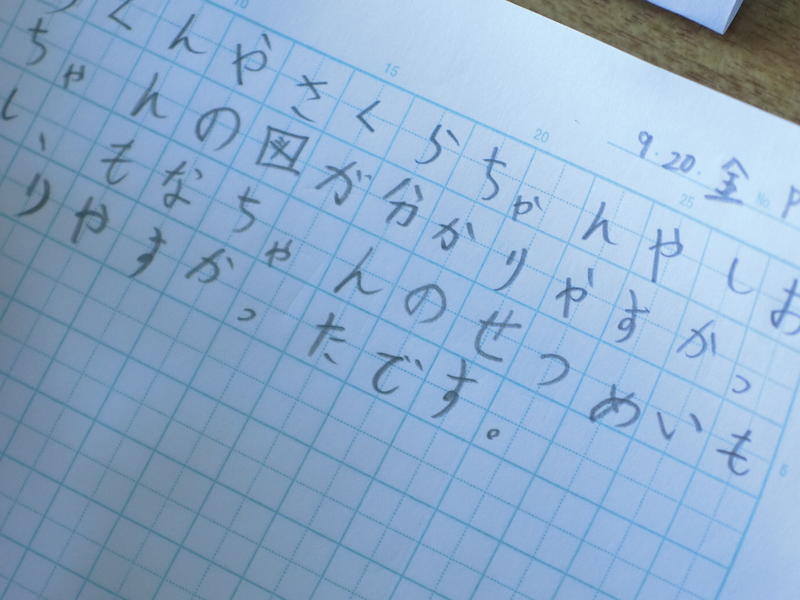 9.20.金 P
No
10 15 20 25
くんやさくらちゃんやしお
ちゃんの図が分かりやすかっ
し、もなちゃんのせつめいも
りやすかったです。
5